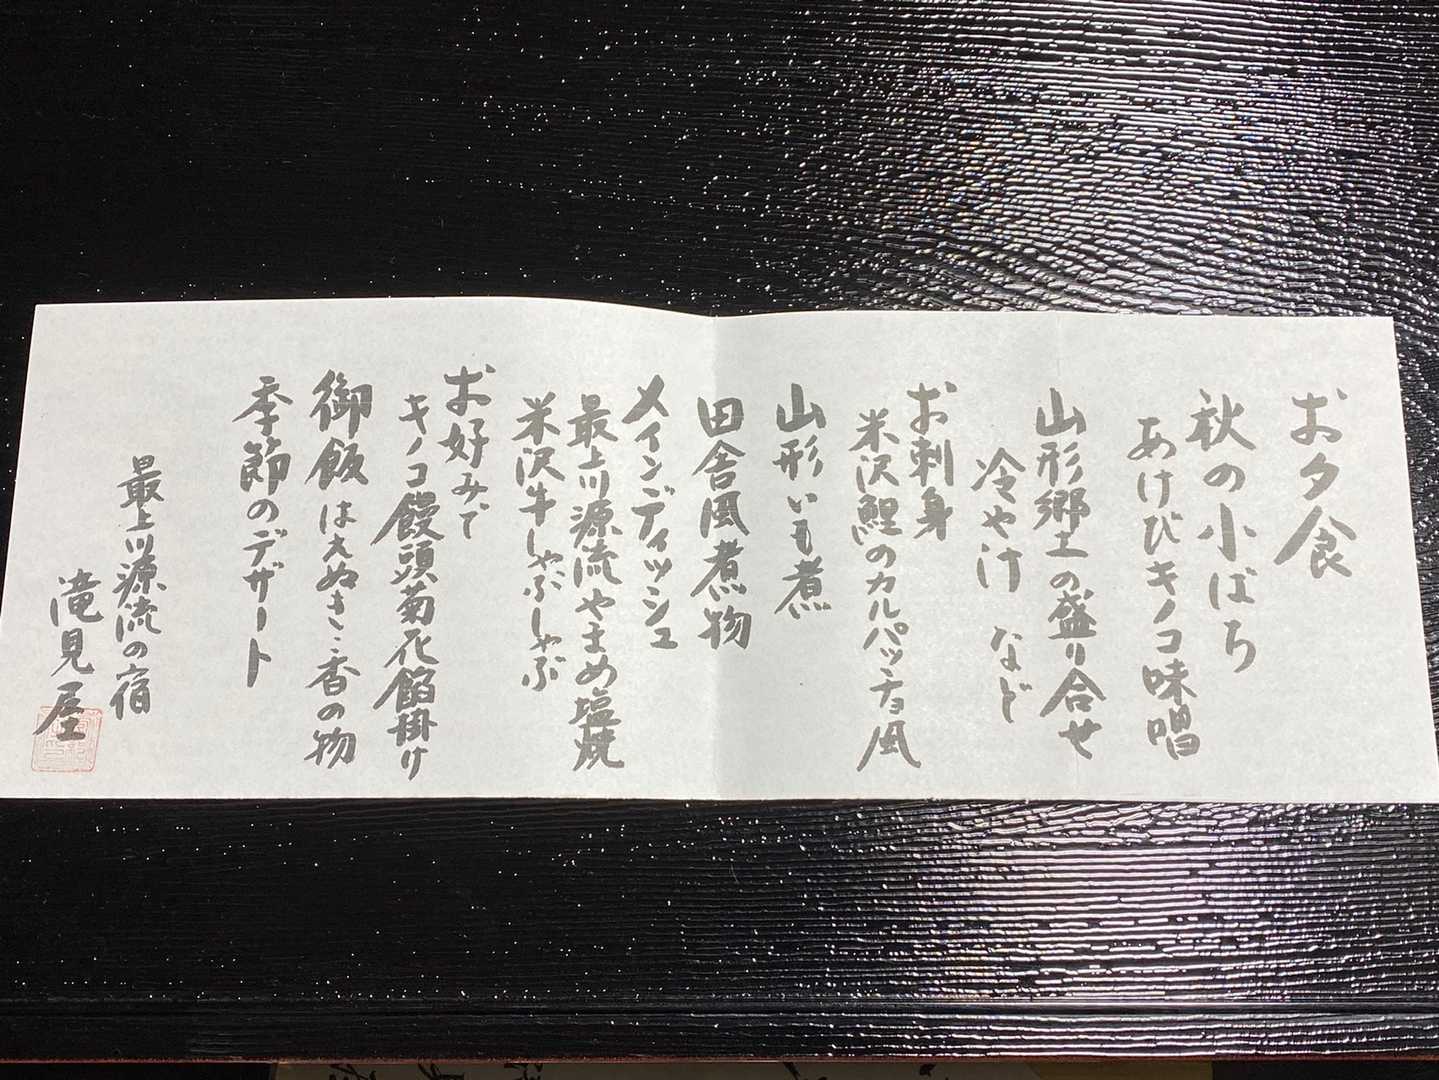 お夕食
秋の小ばち
あけびキノコ味噌
山形郷土の盛り合せ
冷や汁 など
お刺身
米沢鯉のカルパッチョ風
山形いも煮
田舎風煮物
メインディッシュ
最上川源流やまめ塩焼
米沢牛しゃぶしゃぶ
お好みで
キノコ饅頭菊花餡掛け
御飯 はえぬき:香の物
季節のデザート
最上川源流の宿
滝見屋